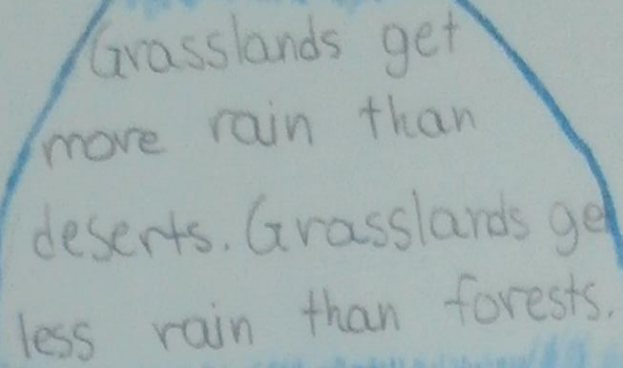 Grasslands get
more rain than
deserts. Grasslands ge
less rain than forests.